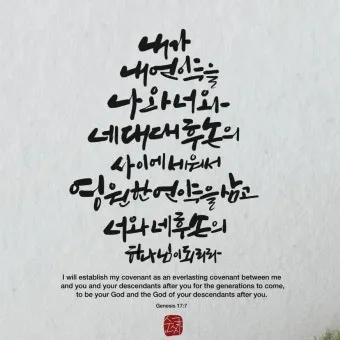 내가
내 언약을
나와 너와
네 대대 후손의
사이에 세워서
영원한 언약을 삼고
너와 네 후손의
하나님이 되리라
I will establish my covenant as an everlasting covenant between me
and you and your descendants after you for the generations to come,
to be your God and the God of your descendants after you.
Genesis 17:7